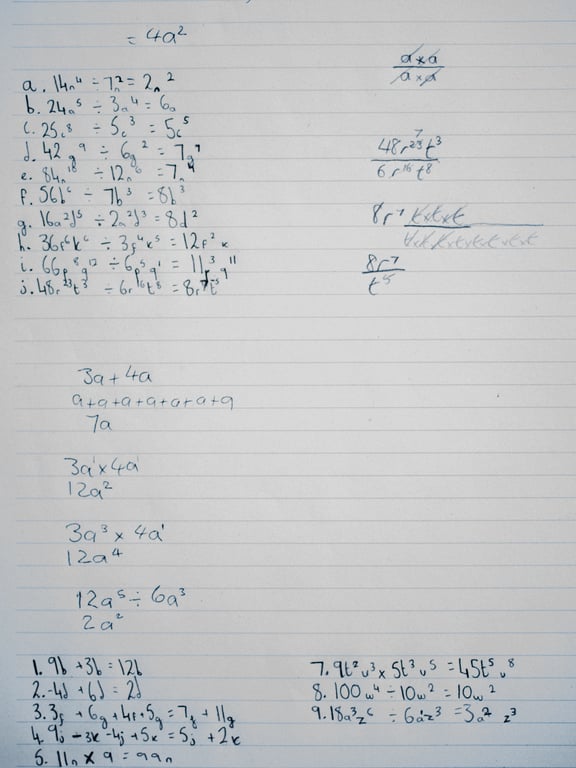 = 4a²
a×a
a×a
a. 14n⁴ ÷ 7n² = 2n²
b. 24a⁵ ÷ 3a⁴ = 6a
c. 25c⁸ ÷ 5c³ = 5c⁵
d. 42g⁹ ÷ 6g² = 7g⁷
e. 84n¹⁰ ÷ 12n⁶ = 7n⁴
f. 56b⁶ ÷ 7b³ = 8b³
g. 16a²d⁵ ÷ 2a²d³ = 8d²
h. 36f⁶k⁶ ÷ 3f⁴k⁵ = 12f²k
i. 66p⁸q¹² ÷ 6p⁵q¹ = 11p³q¹¹
j. 48r²³t³ ÷ 6r¹⁶t⁸ = 8r⁷t⁵
7
48r²³t³
6r¹⁶t⁸
8r⁷ t×t×t
t×t×t×t×t×t×t×t
8r⁷
t⁵
3a + 4a
a+a+a+a+a+a+a
7a
3a¹×4a¹
12a²
3a³ × 4a¹
12a⁴
12a⁵ ÷ 6a³
2a²
1. 9b + 3b = 12b
2. -4d + 6d = 2d
3. 3f + 6g + 4f + 5g = 7f + 11g
4. 9j - 3k - 4j + 5k = 5j + 2k
5. 11n × 9 = 99n
7. 9t²u³ × 5t³u⁵ = 45t⁵u⁸
8. 100w⁴ ÷ 10w² = 10w²
9. 18a³z⁶ ÷ 6a¹z³ = 3a²z³